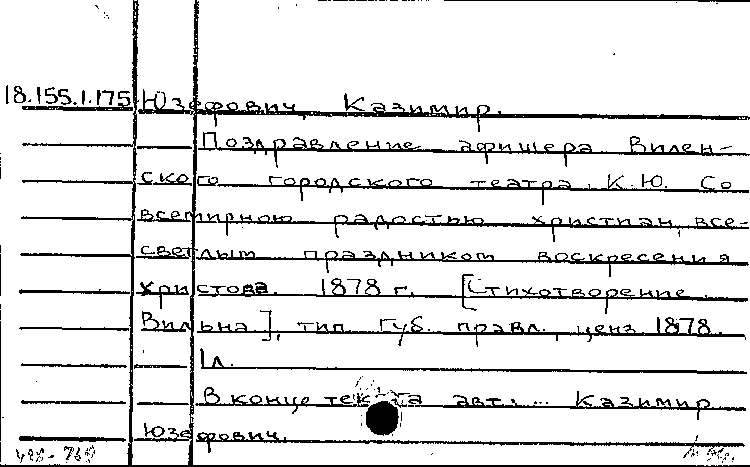 18.155.1.175 Юзефович, Казимир.
Поздравление афишера Вилен-
ского городского театра К.Ю. Со
всемирною радостью христиан, все-
светлым праздником воскресения
христова. 1878 г. [Стихотворение.
Вильна.], тип. Губ. правл., ценз. 1878.
1л.
В конце текста авт.: ... Казимир
Юзефович.